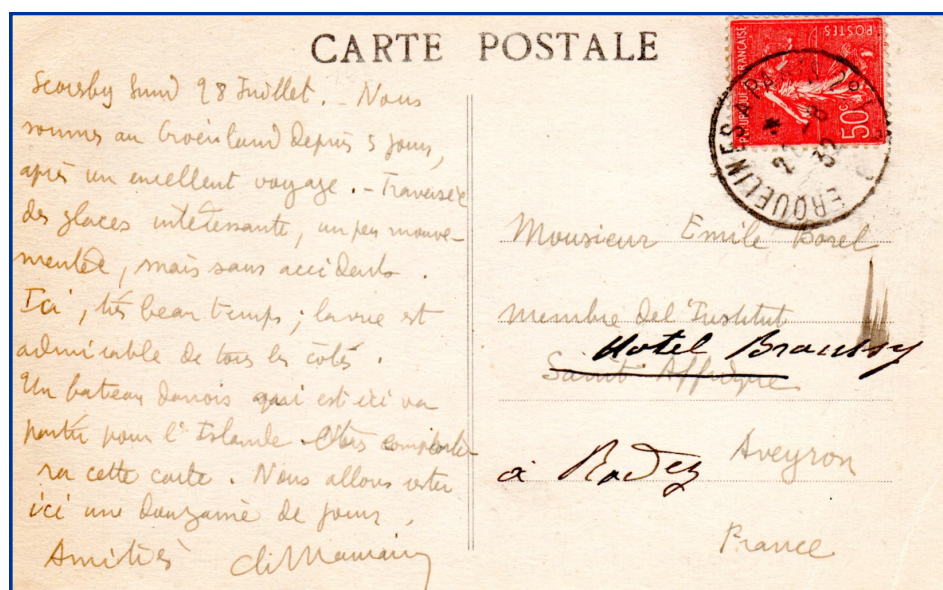 CARTE POSTALE
Scoresby Sund 28 Juillet. - Nous
sommes au Groënland depuis 5 jours,
après un excellent voyage. - Traversée
des glaces intéressante, un peu mouve-
mentée, mais sans accidents.
Ici, très beau temps ; la vue est
admirable de tous les côtés.
Un bateau danois qui est ici va
partir pour l'Islande.
ra cette carte. Nous allons rester
ici une douzaine de jours.
Amitiés
REPUBLIQUE FRANÇAISE
POSTES
50c
ERQUELINES A PA
Monsieur Emile Borel
membre de l'Institut
Hotel Braussy
Saint-Affrique
Aveyron
à Rodez
France